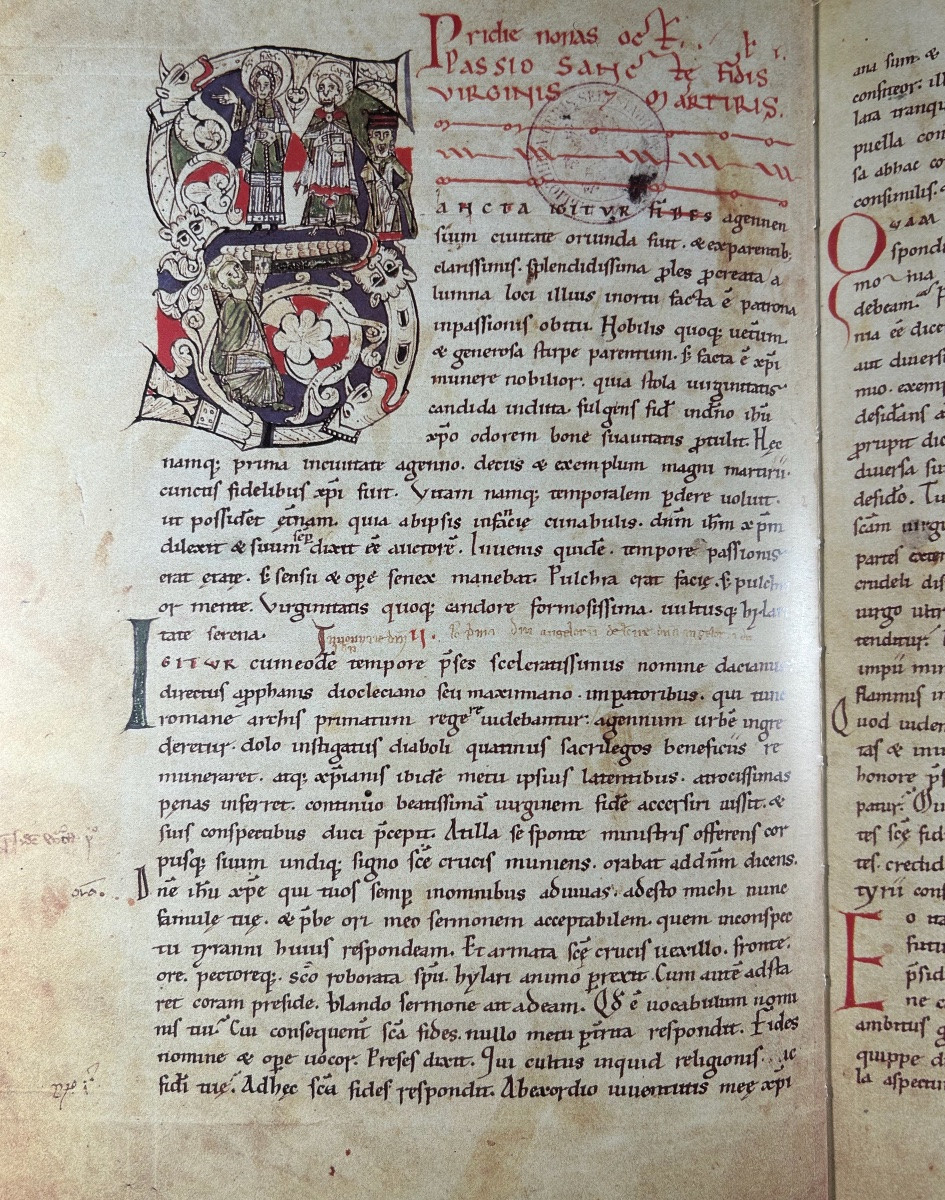 Pridie nonas oct̄.
PASSIO SANCTĘ FIDIS
VIRGINIS 7 MARTIRIS.
ANCTA IGITUR FIDES agennen
sium ciuitate oriunda fuit. & ex parentib;
clarissimis. splendidissima ples pcreata a
lumna loci illius inortu facta ē patrona
inpassionis obitu. Nobilis quoq; uetum
& generosa stirpe parentum. s; facta ē xp̄i
munere nobilior. quia stola uirginitatis
candida induta. fulgens fid' indn̄o ihū
xp̄o odorem bone suauitatis ptulit. Hęc
namq; prima inciuitate agenno. decus & exemplum magni martirii.
cunctis fidelibus xp̄i fuit. Vitam namq; temporalem pdere uoluit.
ut possidet etn̄am. quia abipsis infancię cunabulis. dn̄m ihm̄ xp̄m
dilexit & suum sēp dixit eē auctorē. Iuuenis quidē. tempore passionis
erat ętate. s; sensu & ope senex manebat. Pulchra erat facie. s; pulchri
or mente. Virginitatis quoq; candore formosissima. uultusq; hylari
tate serena.
IGITUR cumeodē tempore p̄ses sceleratissimus nomine dacianus
directus apphanis diocleciano seu maximiano. impatoribus. qui tunc
romane archis primatum regere uidebantur: agennum urbē ingre
deretur. dolo instigatus diaboli quatinus sacrilegos beneficiis re
muneraret. atq; xp̄ianis ibidē metu ipsius latentibus. atrocissimas
penas inferret. continuo beatissimā uirginem fidē accersiri iussit. &
suis conspectibus duci p̄cepit. At illa se sponte ministris offerens cor
pusq; suum undiq; signo scē crucis muniens. orabat addn̄m dicens.
Dn̄e ihū xp̄e qui tuos semp inomnibus adiuuas. adesto michi nunc
famule tuę. & p̄be ori meo sermonem acceptabilem. quem inconspec
tu tyranni huius respondeam. Et armata scę crucis uexillo. fronte.
ore. pectoreq; sc̄o roborata sp̄u. hylari animo prexit. Cum autē adsta
ret coram preside. blando sermone ait adeam. Qd̄ ē uocabulum nomi
nis tui? Cui consequent̄ sc̄a fides. nullo metu ptrita respondit. Fides
nomine & ope uocor. Preses dixit. Qui cultus inquid religionis
fidi tuę. Adhęc sc̄a fides respondit. Abexordio iuuentutis meę xp̄i
ana sum. &
confiteor. ill
lata tranqu
puella con
sa abhac co
consimilis.
QUAM
spond
debeam.
ma eē dice
aut diuers
muo. exemp
desidans a
prupit dic
diuersa su
desido. Tu
scām uirgu
partes
crudeli dis
uirgo ultr
tenditur.
impii min
flammis in
Quod uiden
tas & inu
honore p̄s
patur.
tes scę fid
tes. credid
tyrii cons
EO
futu
p̄sid
ne c
ambitus q
quippe d
la aspectu